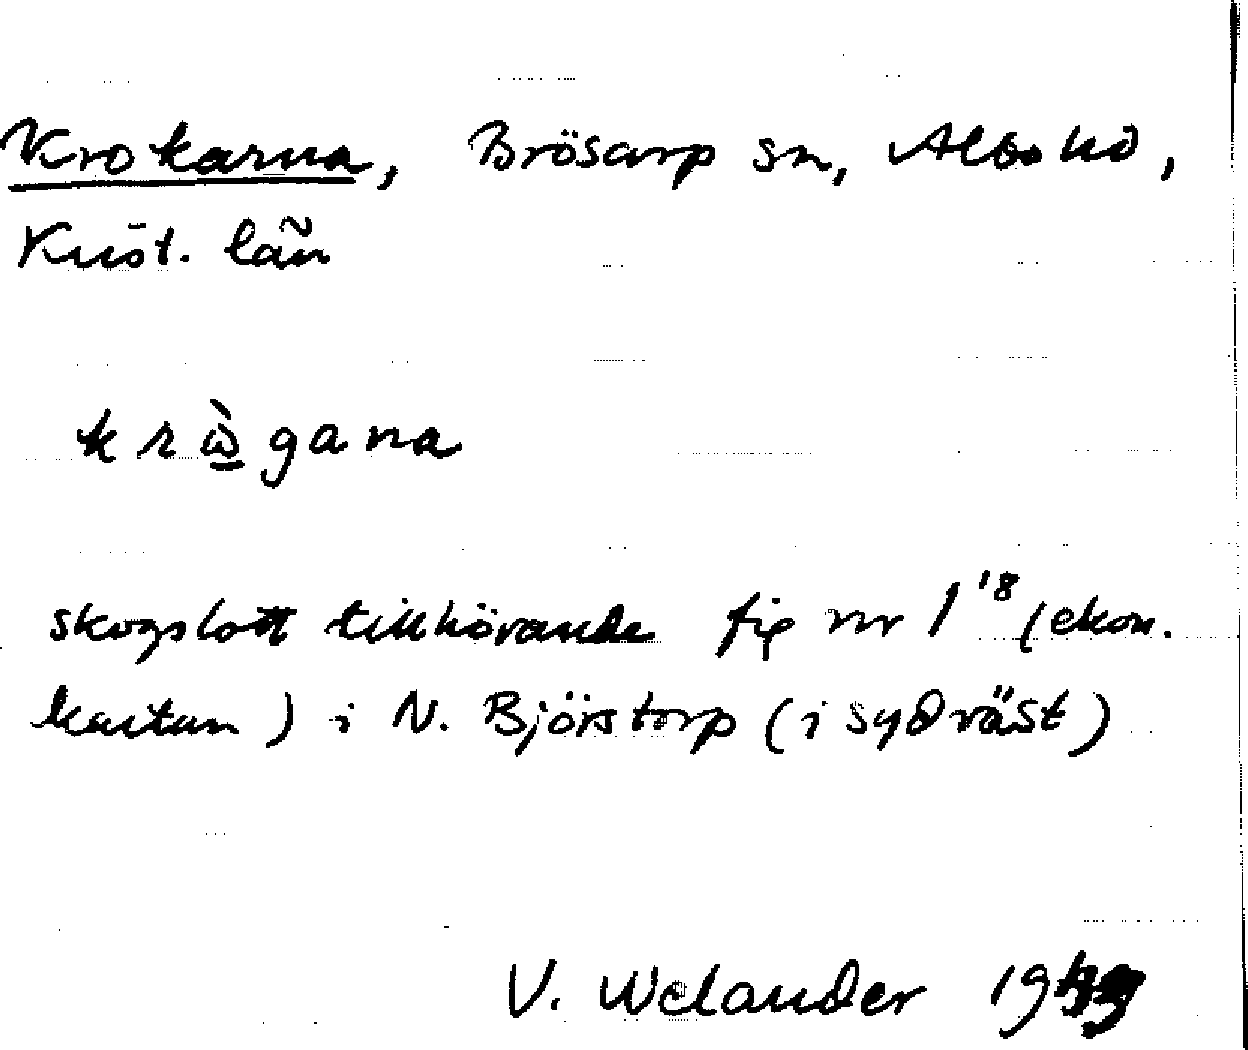 Krokarna, Brösarp sn, Albo hd,
Krist. län
krὼ̲gana
skogslott tillhörande fig nr 1¹⁸ (ekon.
kartan) i N. Björstorp (i sydväst)
V. Welander